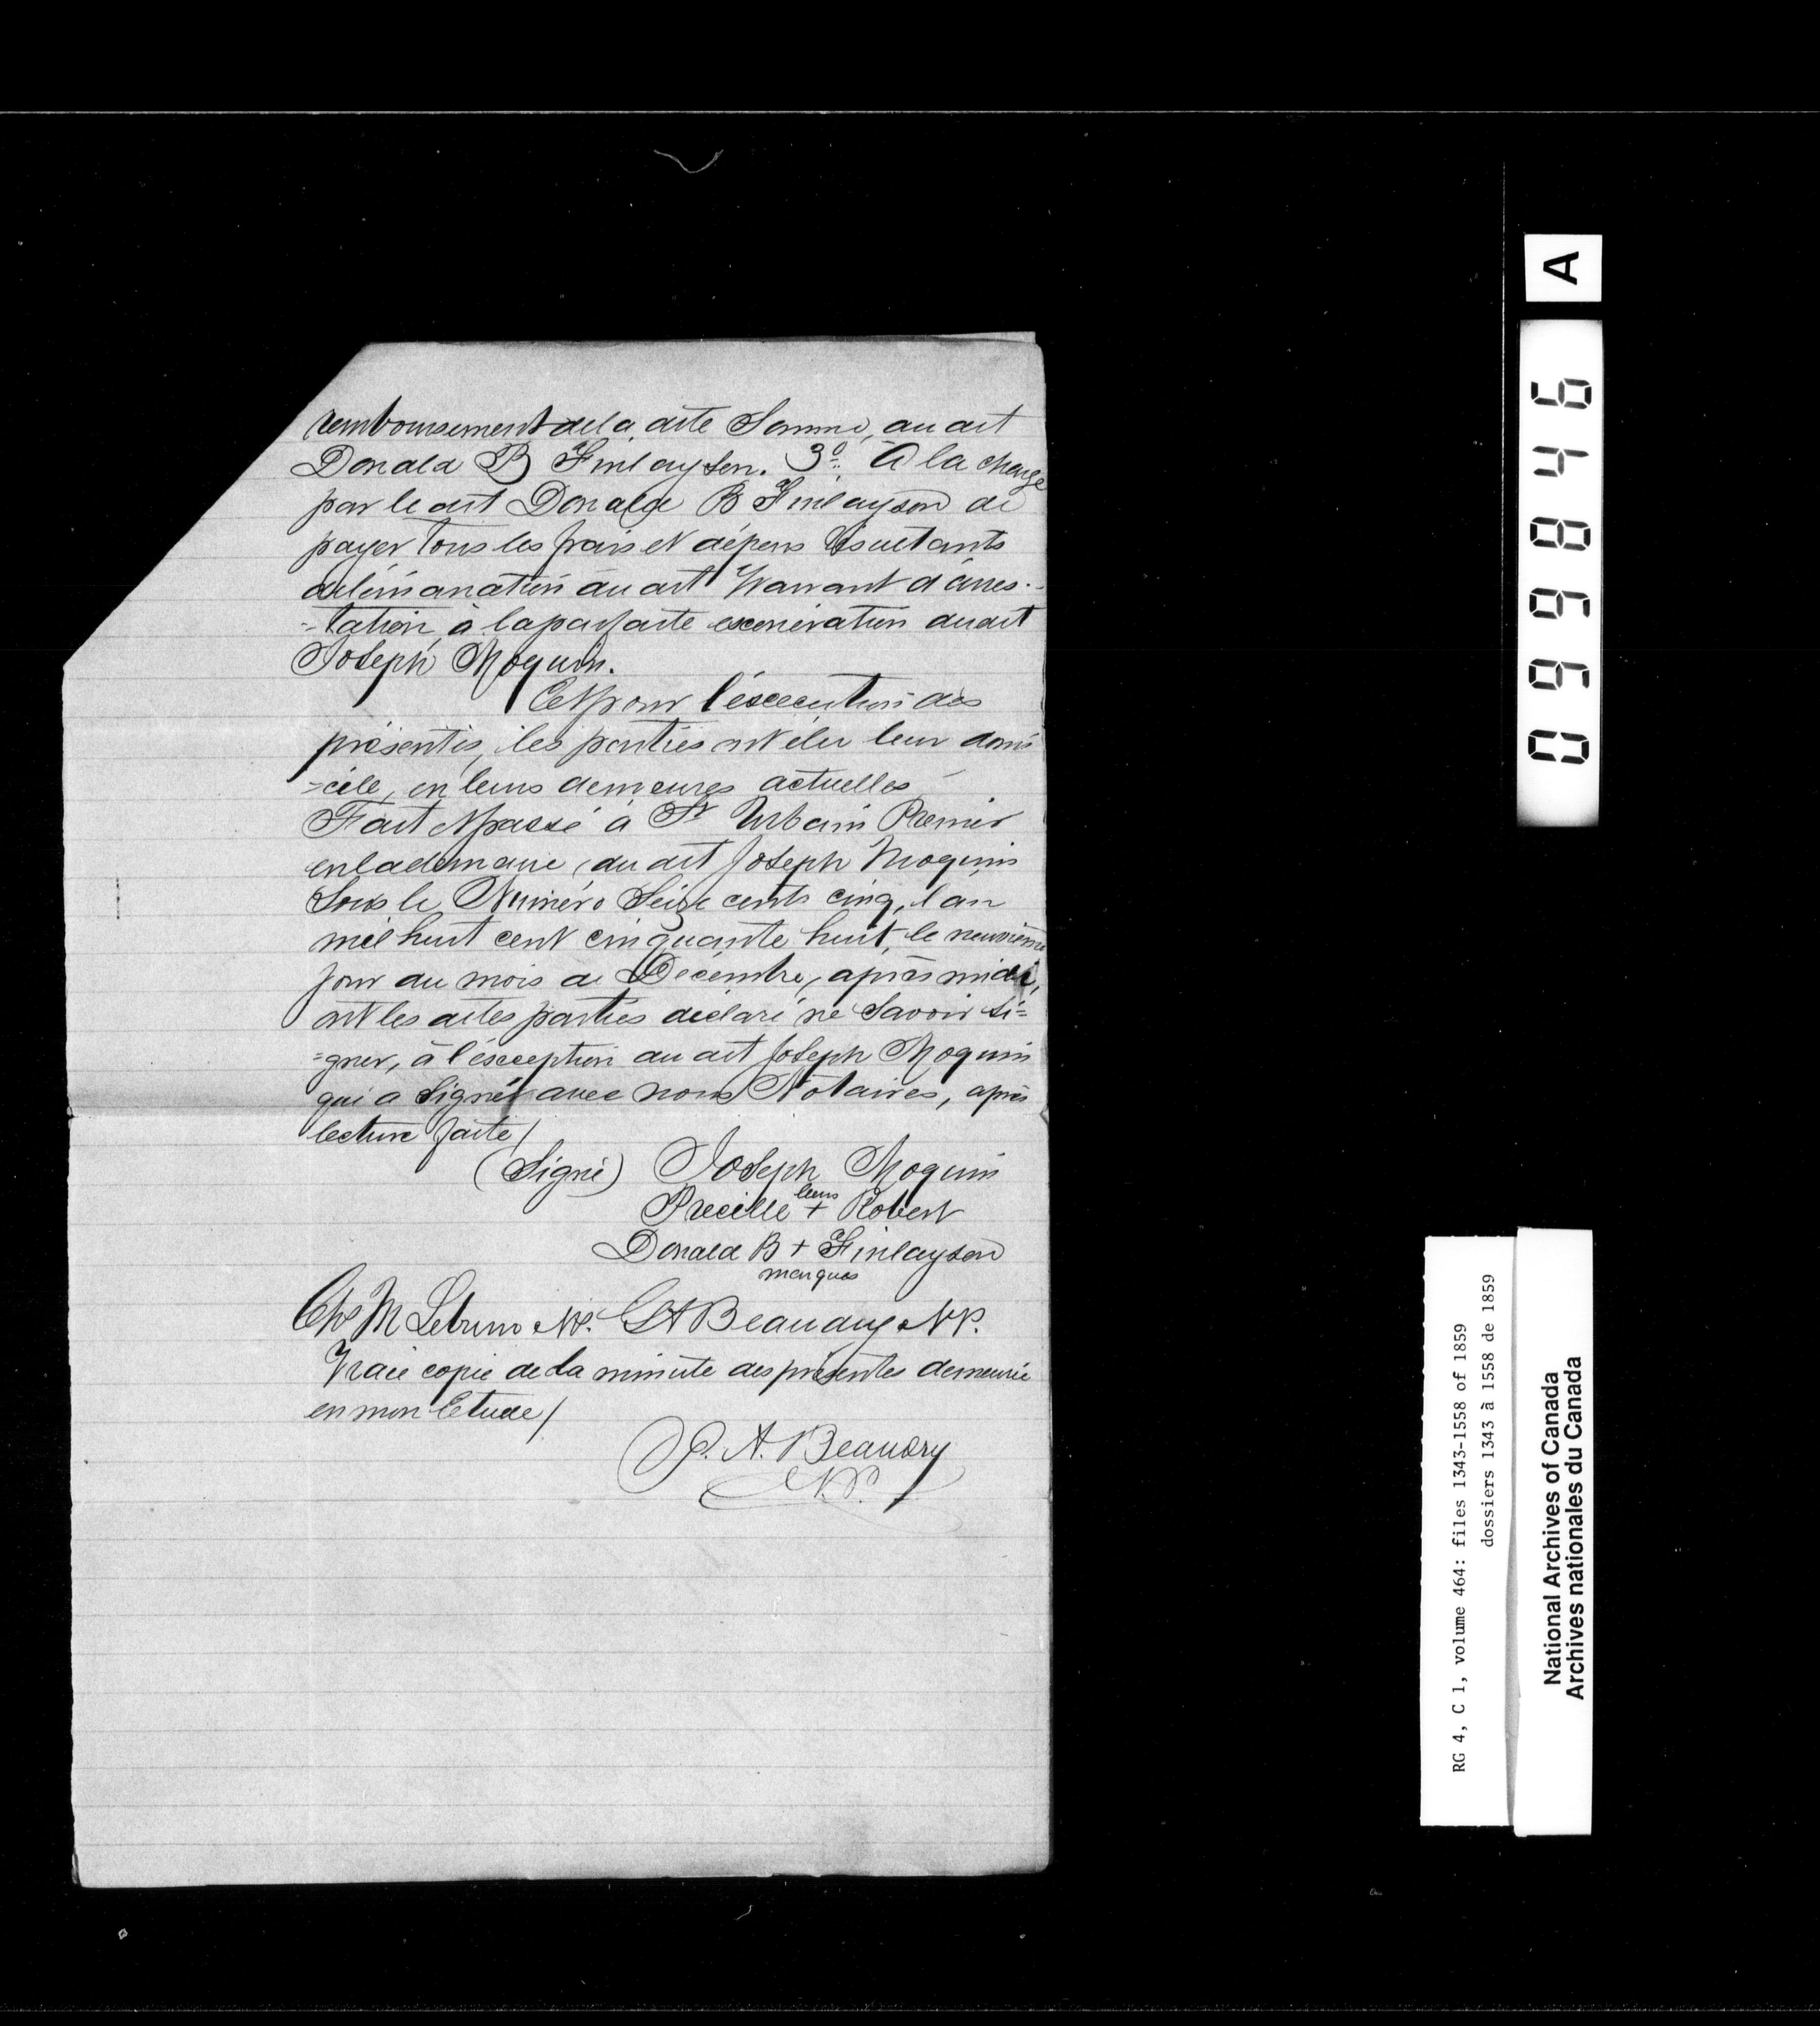 remboursement de la dite Somme, au dit
Donald B Finlayson. 3º. A la charge
par le dit Donald B Finlayson de
payer tous les frais et dépens résultants
de l'émanation du dit Warrant d'arres-
-tation, à la parfaite exonération du dit
Joseph Moquin.
Et pour l'éxécution des
présentes, les parties ont élu leur domi
=cile, en leurs demeures actuelles
Fait et passé à St Urbain Premier
en la demeure, du dit Joseph Moquin
Sous le Numéro Seize cents cinq, l'an
mil huit cent cinquante huit, le neuvième
jour du mois de Décembre, après midi,
ont les dites parties déclaré ne Savoir Si=
=gner, à l'éxception du dit Joseph Moquin
qui a Signé avec nous Notaires, après
lecture faite/
(Signé) Joseph Moquin
leurs
Precille + Robert
Donald B + Finlayson
marques
Chs M Lebrun NP. Beaudry NP.
Vraie copie de la minute des présentes demeurée
en mon Etude/
A. Beaudry
N.P.
A
099846
RG 4, C 1, volume 464: files 1343-1558 of 1859
dossiers 1343 à 1558 de 1859
National Archives of Canada
Archives nationales du Canada